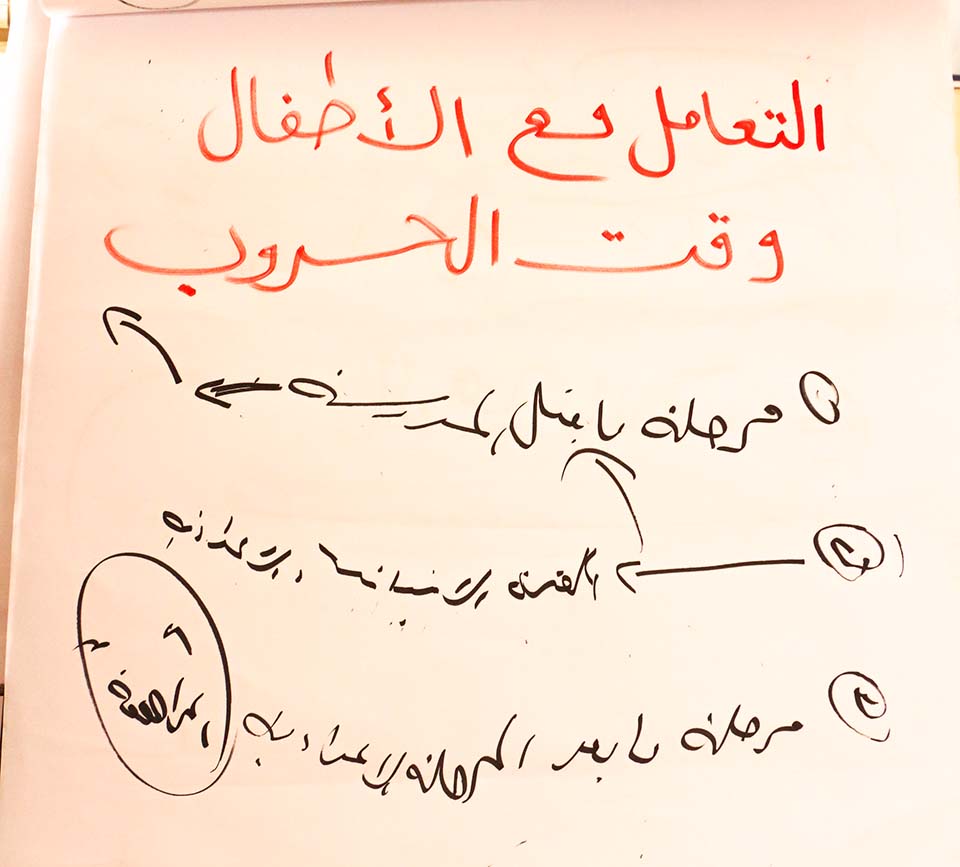 التعامل مع الأطفال
وقت الحروب
① مرحلة ما قبل المدرسة
② الفترة الابتدائية والاعدادية
③ مرحلة ما بعد المرحلة الاعدادية المراهقة